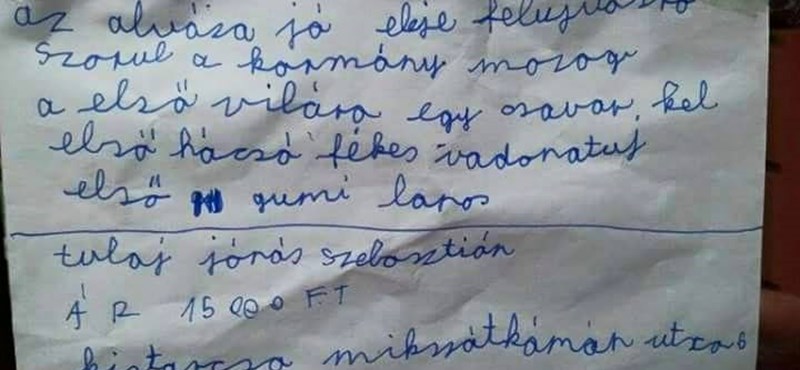 az alváza jó eleje felujvásra
szorul a kormány mozog
a első vilára egy csavar, kel
első hácsó fékes vadonatuj
első gumi lapos
tulaj jónás szebasztián
ÁR 15000 FT
kistarcsa mikszátkámán utca 6